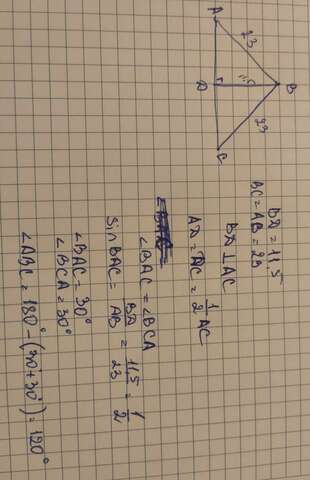 A
23
B
11,5
D
23
C
BD = 11,5
BC = AB = 23
BD ⊥ AC
AD = DC = 1/2 AC
∠BAC = ∠BCA
sin BAC = BD/AB = 11,5/23 = 1/2
∠BAC = 30°
∠BCA = 30°
∠ABC = 180° - (30° + 30°) = 120°